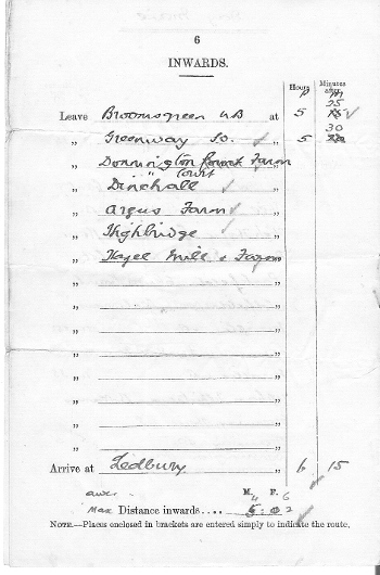 6
INWARDS.
Hours Minutes after
p m
25
Leave Broomsgreen WB at 5 15
30
„ Greenway So. „ 5 20
„ Donnington Court Farm „
„ „ Court
„ Dinchall „
„ Argus Farm „
„ Highbridge „
„ Hazel Mill & Farm „
„ „
„ „
„ „
„ „
„ „
„ „
„ „
„ „
Arrive at Ledbury 6 15
M. F.
„ 6
Max Distance inwards.... 5 : 0 2
NOTE.—Places enclosed in brackets are entered simply to indicate the route.